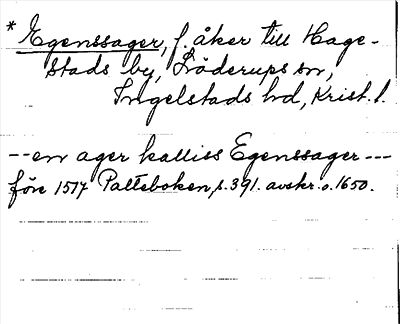 * Egenssager, f. åker till Hage-
stads by, Löderups sn,
Ingelstads hd, Krist. l.
-- en ager kalliss Egenssager ---
före 1517 Palteboken, s. 391. avskr. o. 1650.